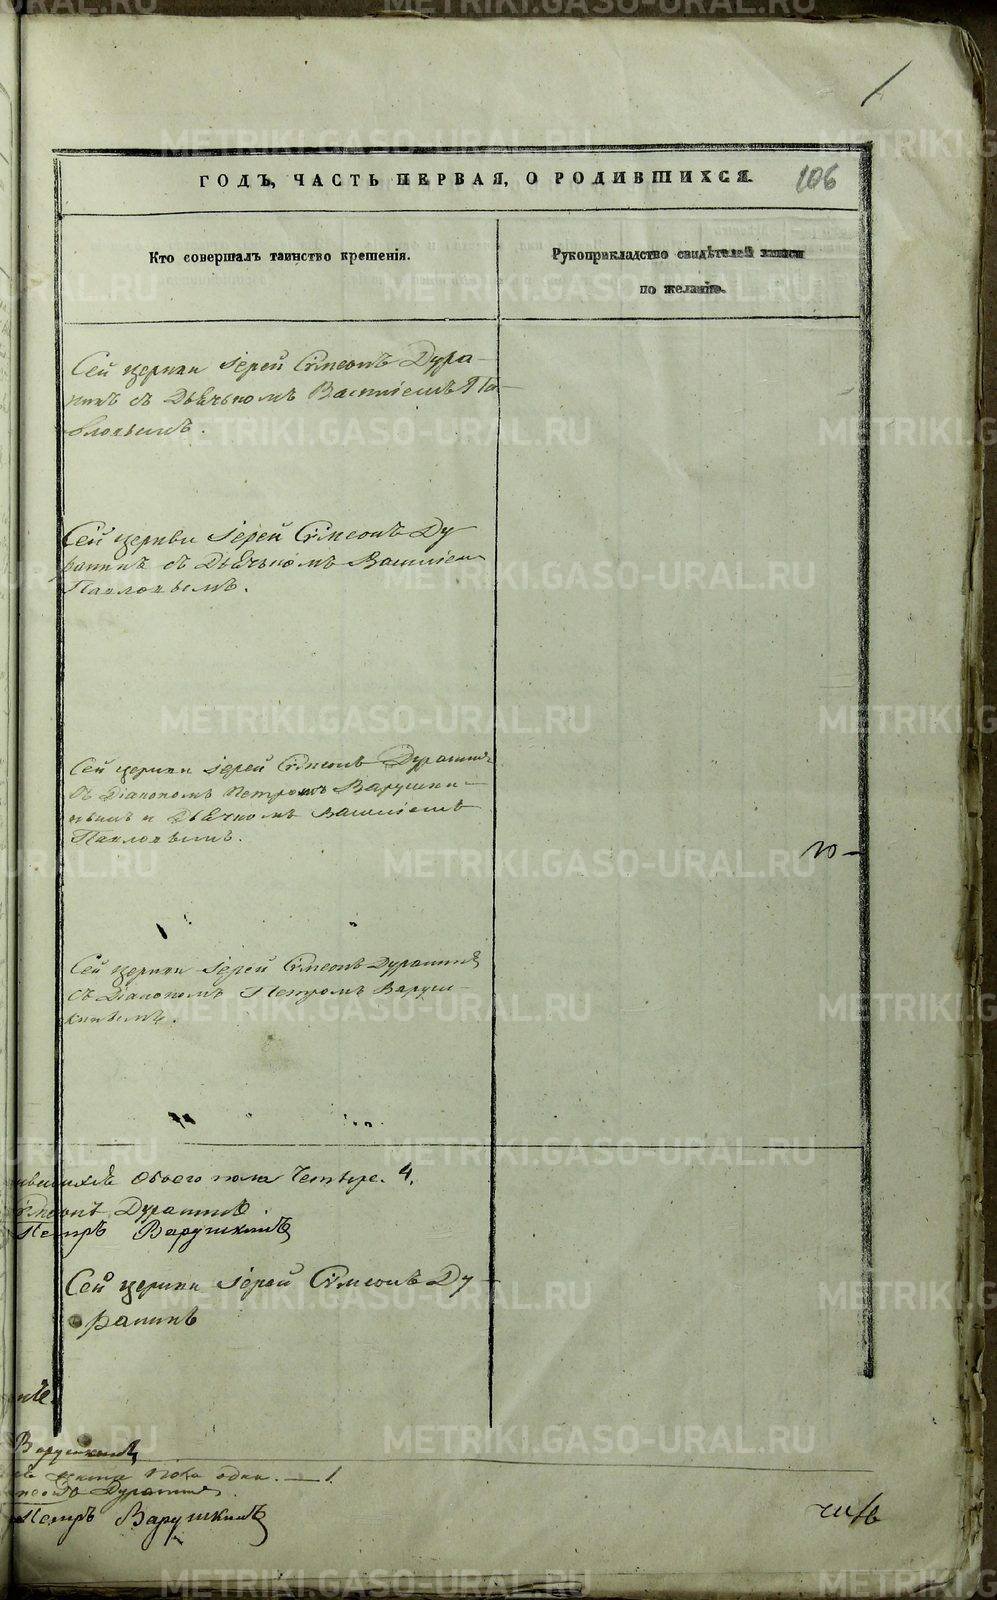 ГОДЪ, ЧАСТЬ ПЕРВАЯ, О РОДИВШИХСЯ. 106
Кто совершалъ таинство крещенія.
Рукоприкладство свидѣтелей записи
по желанію.
Сей церкви Іерей Симеонъ Дура-
нинъ съ Дьячкомъ Василіемъ Па-
вловымъ.
Сей церкви Іерей Симеонъ Ду
ранинъ съ Дьячкомъ Василіем
Павловымъ.
Сей церкви Іерей Симеонъ Дуранинъ
съ Діакономъ Петромъ Варушки-
нымъ и Дьячкомъ Василіемъ
Павловымъ.
Сей церкви Іерей Симеонъ Дуранинъ
съ Діакономъ Петромъ Варуш-
кинымъ.
обоего пола Четыре. 4.
Симеонъ Дуранинъ.
Петръ Варушкинъ
Сей церкви Іерей Симеонъ Ду-
ранинъ
Варушкинъ
пола одна. — 1.
Дуранинъ.
Петръ Варушкинъ
METRIKI.GASO-URAL.RU